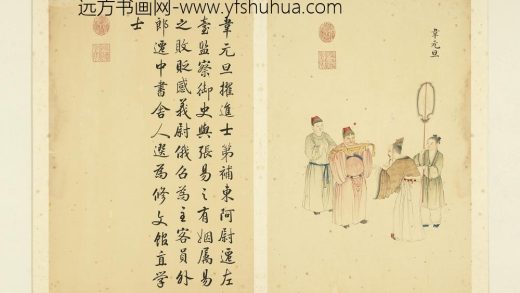 远方书画网-www.yfshuhua.com
韋元旦
韋元旦擢進士第補東阿尉遷左
臺監察御史與張易之有姻属易
之敗貶感義尉俄召為主客員外
郎遷中書舍人選為修文館直學
士